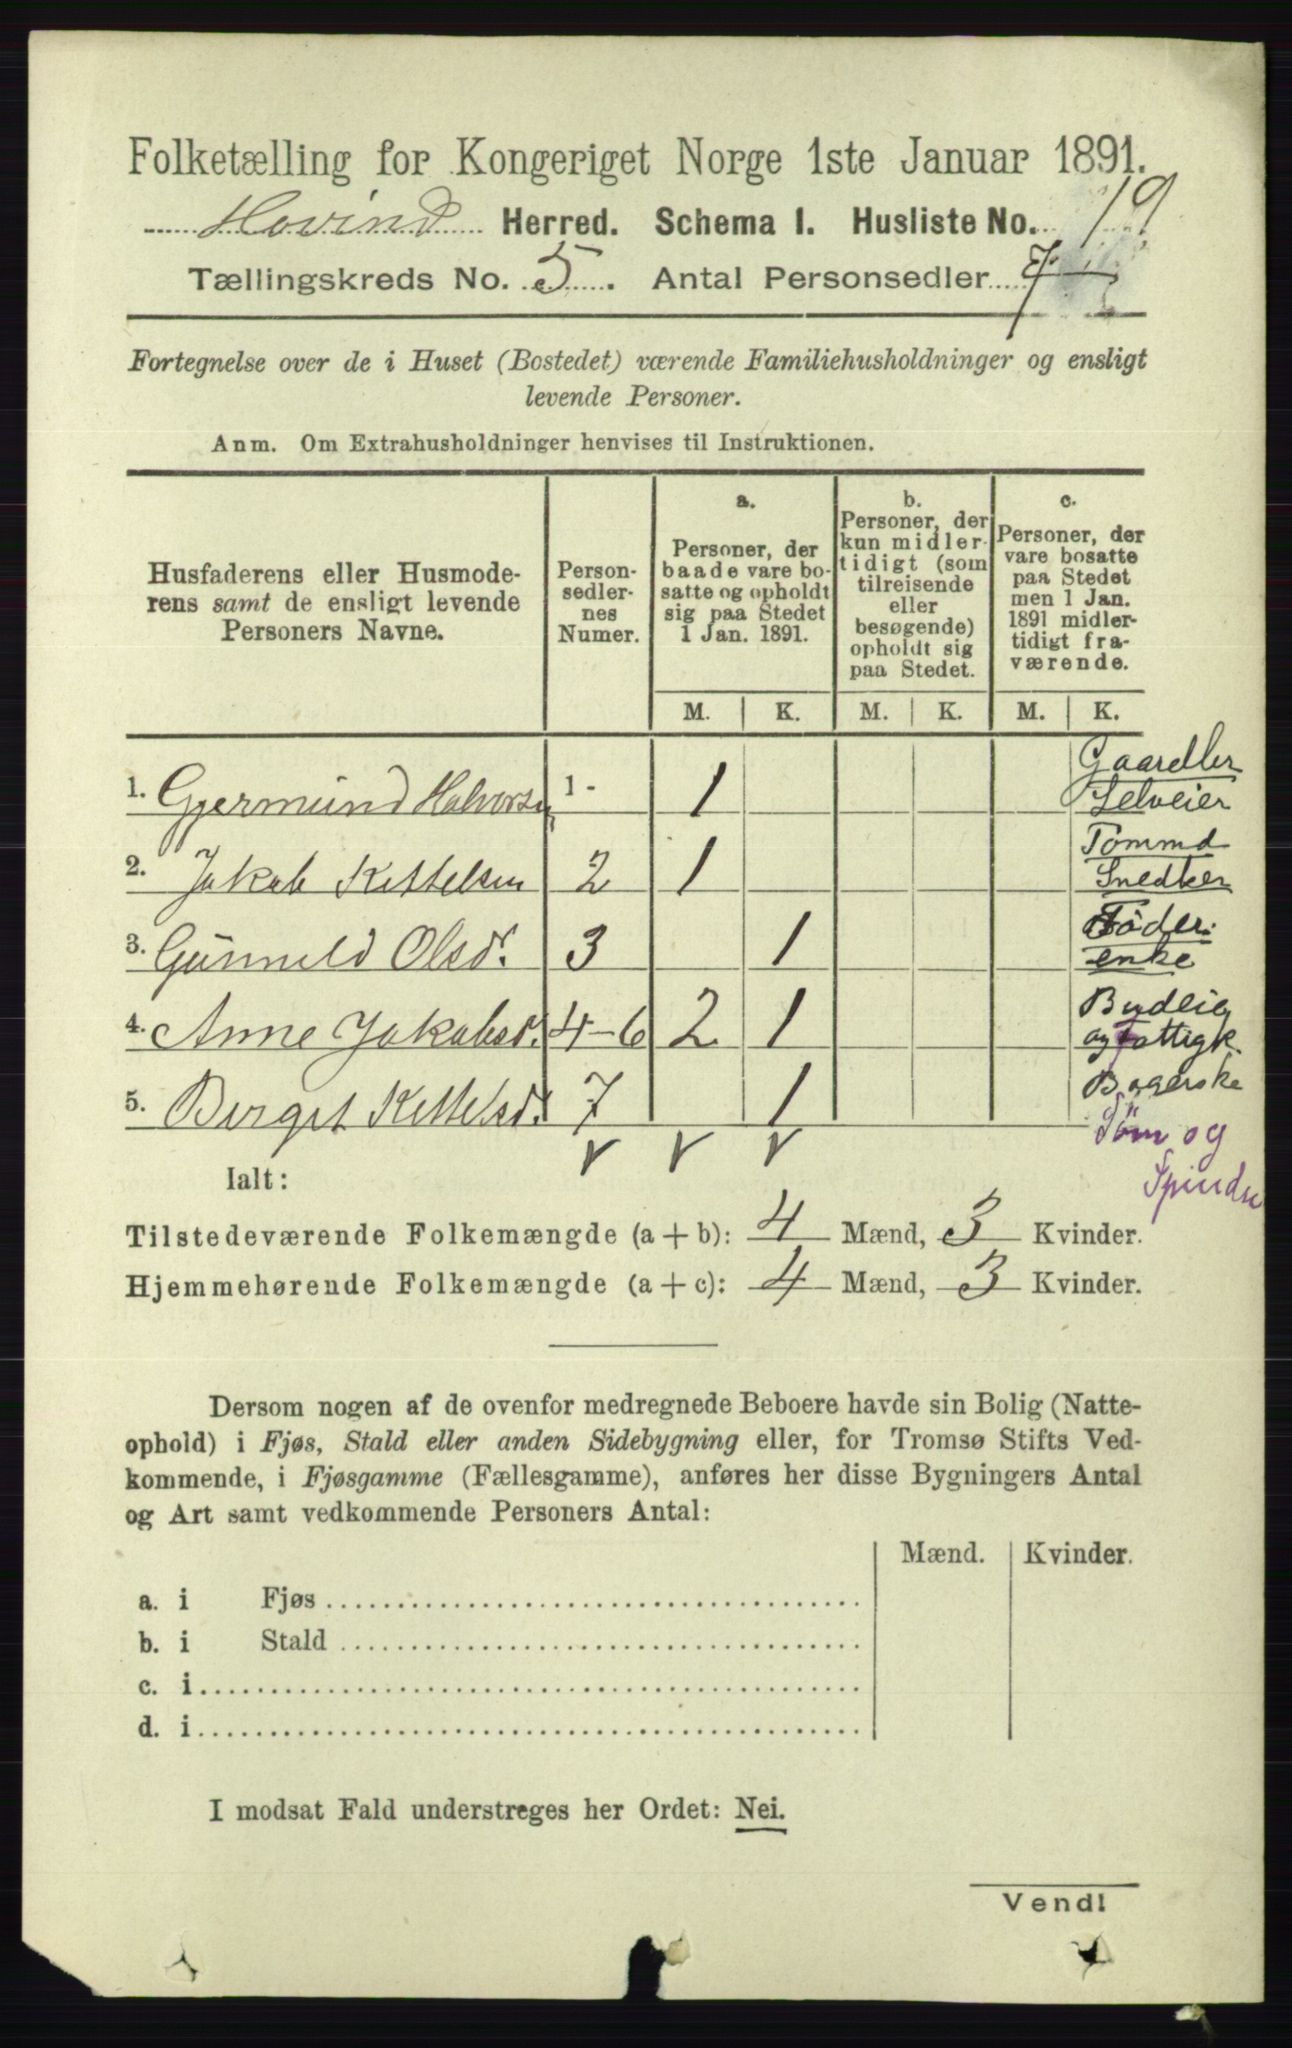 Folketælling for Kongeriget Norge 1ste Januar 1891.
Hovind Herred. Schema I. Husliste No. 19
Tællingskreds No. 5. Antal Personsedler 7
Fortegnelse over de i Huset (Bostedet) værende Familiehusholdninger og ensligt
levende Personer.
Anm. Om Extrahusholdninger henvises til Instruktionen.
Husfaderens eller Husmode-
rens samt de ensligt levende
Personers Navne.
Person-
sedler-
nes
Numer.
a.
Personer, der
baade vare bo-
satte og opholdt
sig paa Stedet
1 Jan. 1891.
b.
Personer, der
kun midler-
tidigt (som
tilreisende
eller
besøgende)
opholdt sig
paa Stedet.
c.
Personer, der
vare bosatte
paa Stedet
men 1 Jan.
1891 midler-
tidigt fra-
værende.
M. K. M. K. M. K.
1. Gjermund Halvorsen 1 - 1 Gaardbr Selveier
2. Jakob Kittelsen 2 1 Tømmd Snedker
3. Gunnuld Olsdr. 3 1 Föder. enke
4. Anne Jakobsd. 4-6 2 1 Budeie og Fattigk
5. Birget Kittelsd. 7 1 Bagerske
Söm og
Spindn
Ialt:
Tilstedeværende Folkemængde (a + b): 4 Mænd, 3 Kvinder.
Hjemmehørende Folkemængde (a + c): 4 Mænd, 3 Kvinder.
Dersom nogen af de ovenfor medregnede Beboere havde sin Bolig (Natte-
ophold) i Fjøs, Stald eller anden Sidebygning eller, for Tromsø Stifts Ved-
kommende, i Fjøsgamme (Fællesgamme), anføres her disse Bygningers Antal
og Art samt vedkommende Personers Antal:
Mænd. Kvinder.
a. i Fjøs
b. i Stald
c. i
d. i
I modsat Fald understreges her Ordet: Nei.
Vend!